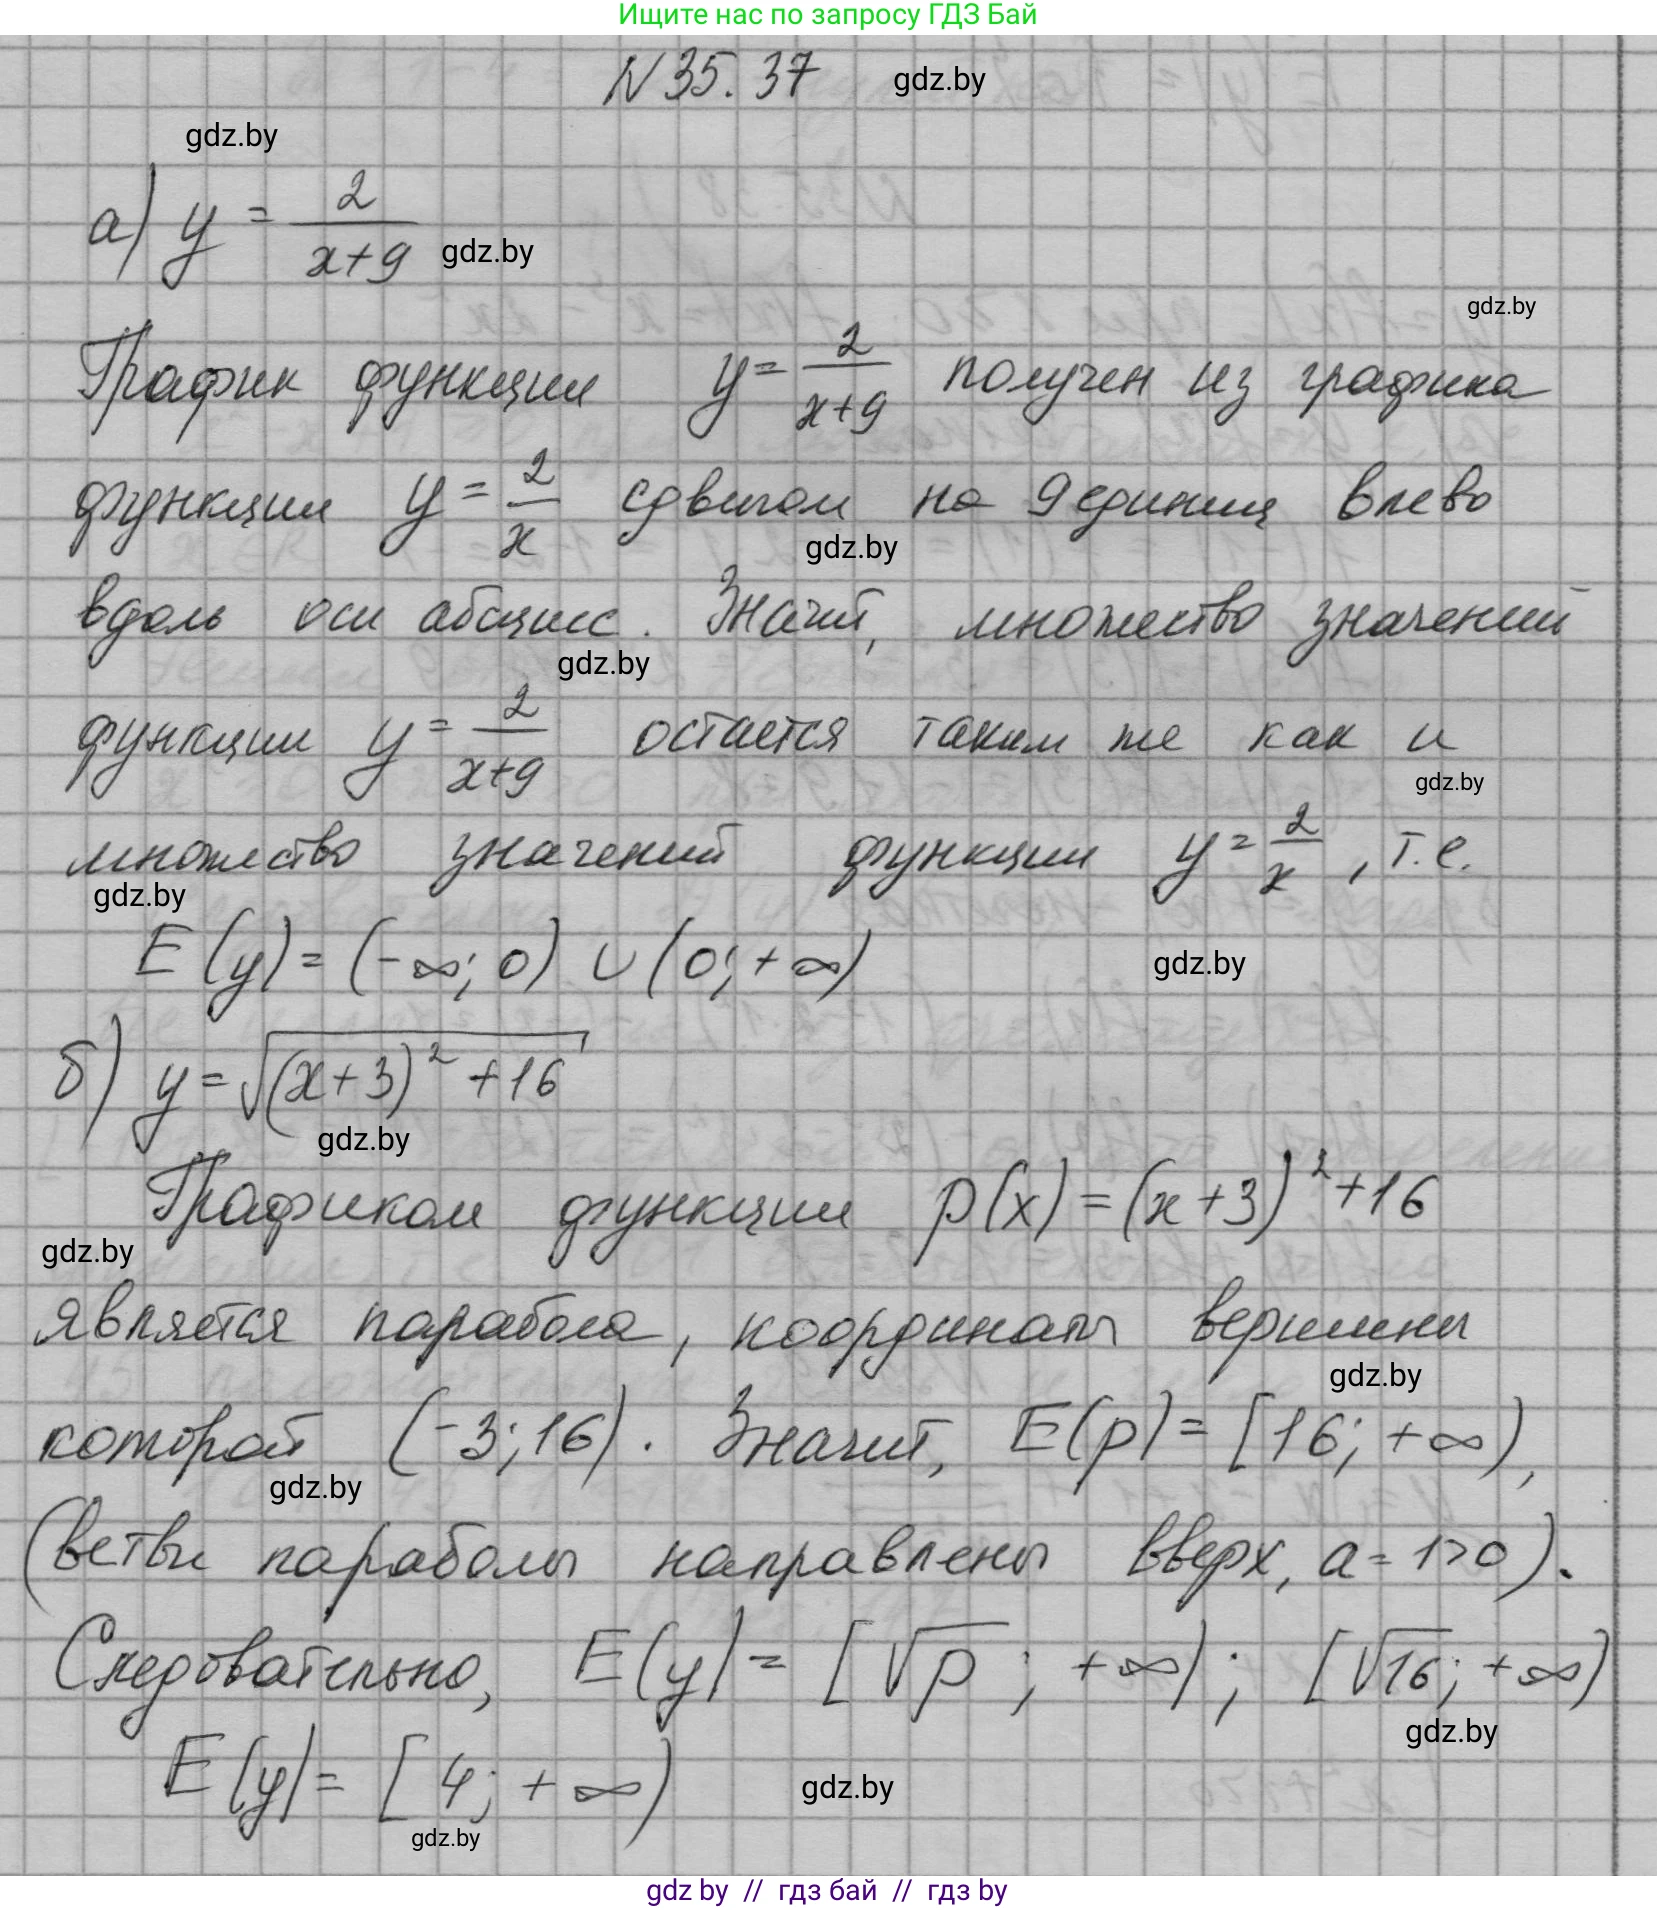 Ищите нас по запросу ГДЗ Бай
N 35.37 gdz.by
gdz.by
а) y = 2/(x+9) gdz.by
gdz.by
График функции y = 2/(x+9) получен из графика
функции y = 2/x сдвигом на 9 единиц влево
gdz.by
вдоль оси абсцисс. Значит, множество значений
gdz.by
функции y = 2/(x+9) остается таким же как и
gdz.by
множество значений функции y = 2/x, т.е.
gdz.by
E(y) = (-∞; 0) ∪ (0; +∞) gdz.by
б) y = √((x+3)² + 16)
gdz.by
Графиком функции p(x) = (x+3)² + 16
gdz.by
является парабола, координаты вершины
gdz.by
которой (-3; 16). Значит, E(p) = [16; +∞),
gdz.by
(ветви параболы направлены вверх, a = 1>0).
Следовательно, E(y) = [√p; +∞); [√16; +∞)
gdz.by
E(y) = [4; +∞) gdz.by
gdz.by
gdz by // гдз бай // гдз by